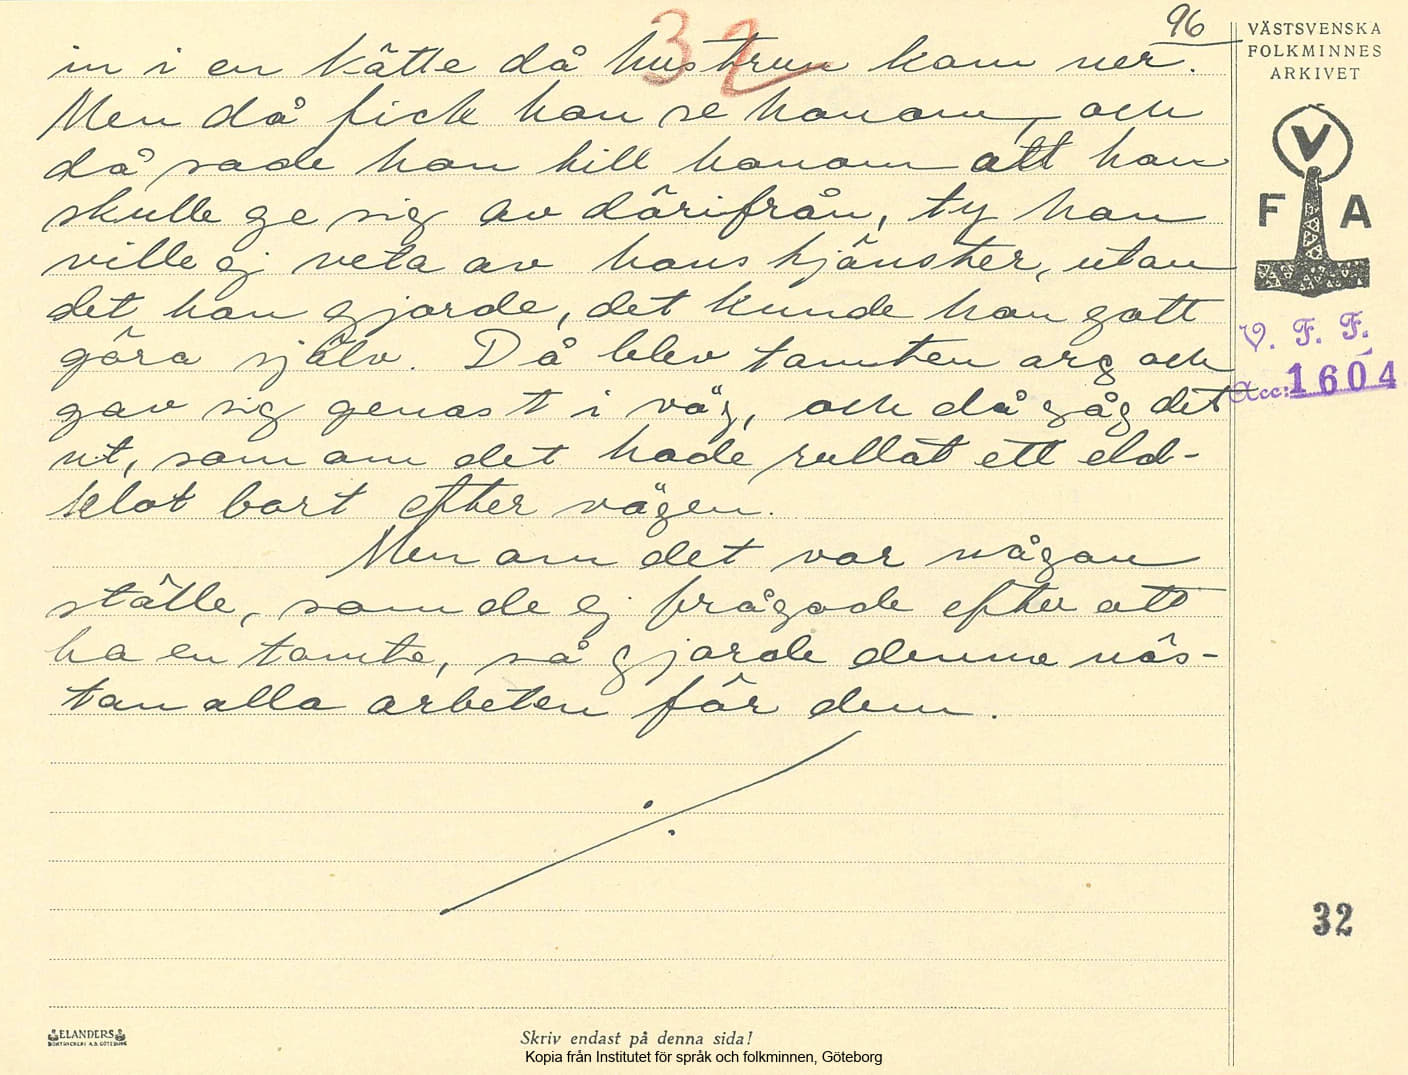 96
32
in i en kätte då hustrun kom ner.
Men då fick hon se honom, och
då sade hon till honom att han
skulle ge sig av därifrån, ty hon
ville ej veta av hans tjänster, utan
det han gjorde, det kunde hon gott
göra själv. Då blev tomten arg och
gav sig genast i väg, och då såg det
ut, som om det hade rullat ett eld-
klot bort efter vägen.
Men om det var någon
ställe, som de ej frågade efter att
ha en tomte, så gjorde denne näs-
tan alla arbeten för dem.
VÄSTSVENSKA
FOLKMINNES
ARKIVET
V
F A
V. F. F.
Acc: 1604
32
ELANDERS
BOKTRYCKERI A.B. GÖTEBORG
Skriv endast på denna sida!
Kopia från Institutet för språk och folkminnen, Göteborg